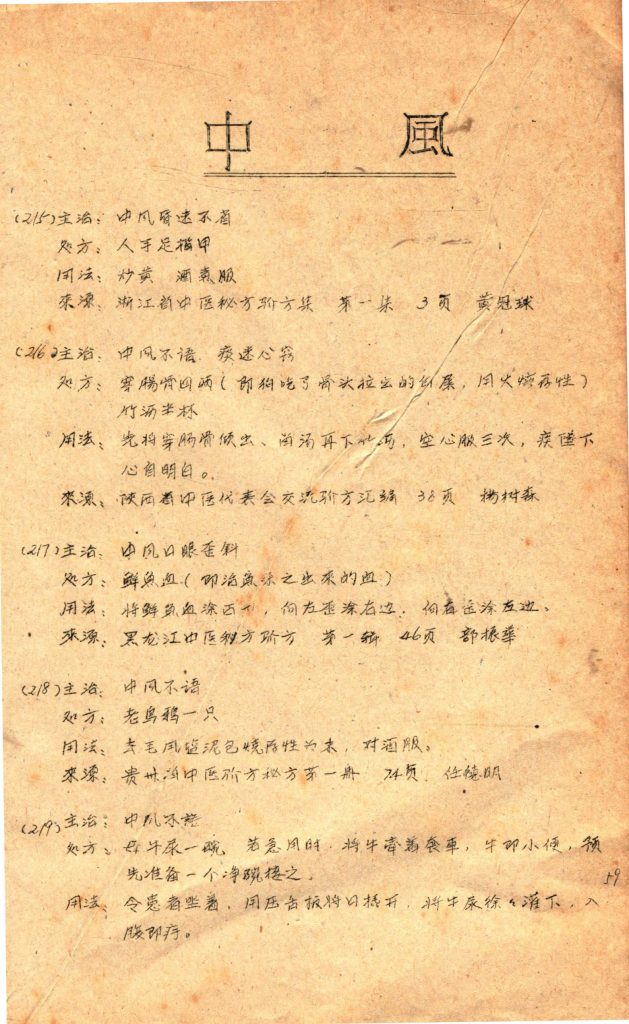 中風
(215)主治：中风昏迷不省
处方：人手足指甲
用法：炒黄 酒煮服
來源：浙江省中医秘方验方集 第一集 3页 黄冠球
(216)主治：中风不语 痰迷心窍
处方：穿腸骨四两(即狗吃了骨头拉出的白屎，用火煅存性)
竹沥半杯
用法：先将穿肠骨倾出、滴汤再下竹沥，空心服三次，痰随下
心自明白。
來源：陕西省中医代表会交流验方汇编 38页 杨树森
(217)主治：中风口眼歪斜
处方：鲜魚血(即活魚 之出來的血)
用法：将鲜魚血涂面上，向左歪涂右边，向右歪涂左边。
來源：黑龙江中医秘方验方 第一辑 46页 郜振華
(218)主治：中风不语
处方：老烏鴉一只
用法：去毛用盐泥包燒存性为末，对酒服。
來源：贵州省中医验方秘方第一册 74页 任德明
(219)主治：中风不語
处方：母牛尿一碗 若急用时，将牛牽着 ，牛即小便，预
先准备一个净碗接之。
用法：令患者坐着，用压舌板将口撬开，将牛尿徐々灌下，入
腹即疗。
59